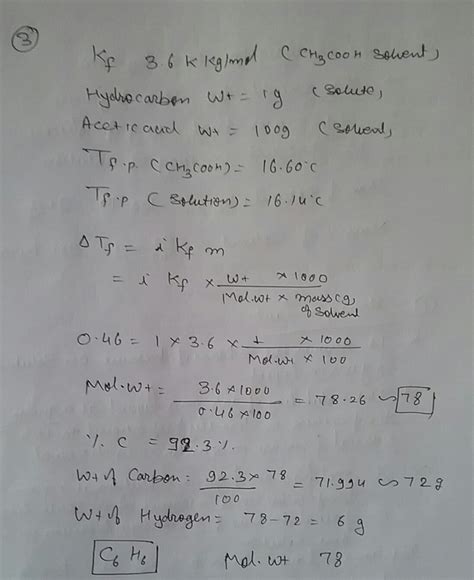 3
Kf 3.6 K Kg/mol (CH3COOH Solvent)
Hydrocarbon Wt = 1g (Solute)
Acetic acid Wt = 100g (Solvent)
Tf.p (CH3COOH) = 16.60°C
Tf.p (Solution) = 16.14°C
ΔTf = i Kf m
= i Kf × Wt × 1000 / Mol.wt × mass(g) of Solvent
0.46 = 1 × 3.6 × 1 × 1000 / Mol.wt × 100
Mol.wt = 3.6×1000 / 0.46×100 = 78.26 ∽ 78
% C = 92.3%
Wt of Carbon: 92.3 × 78 / 100 = 71.994 ∽ 72g
Wt of Hydrogen = 78 - 72 = 6 g
C6 H6 Mol.wt 78